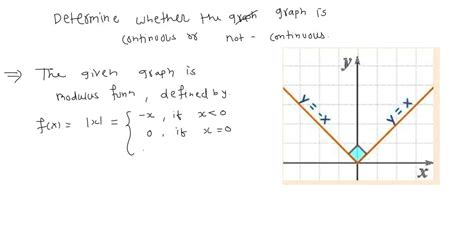 Determine whether the graph graph is
continuous or not - continuous.
⇒ The given graph is
modulus funn, defined by.
f(x) = |x| = { -x, if x<0
0, if x=0
y
y = -x
y = x
x